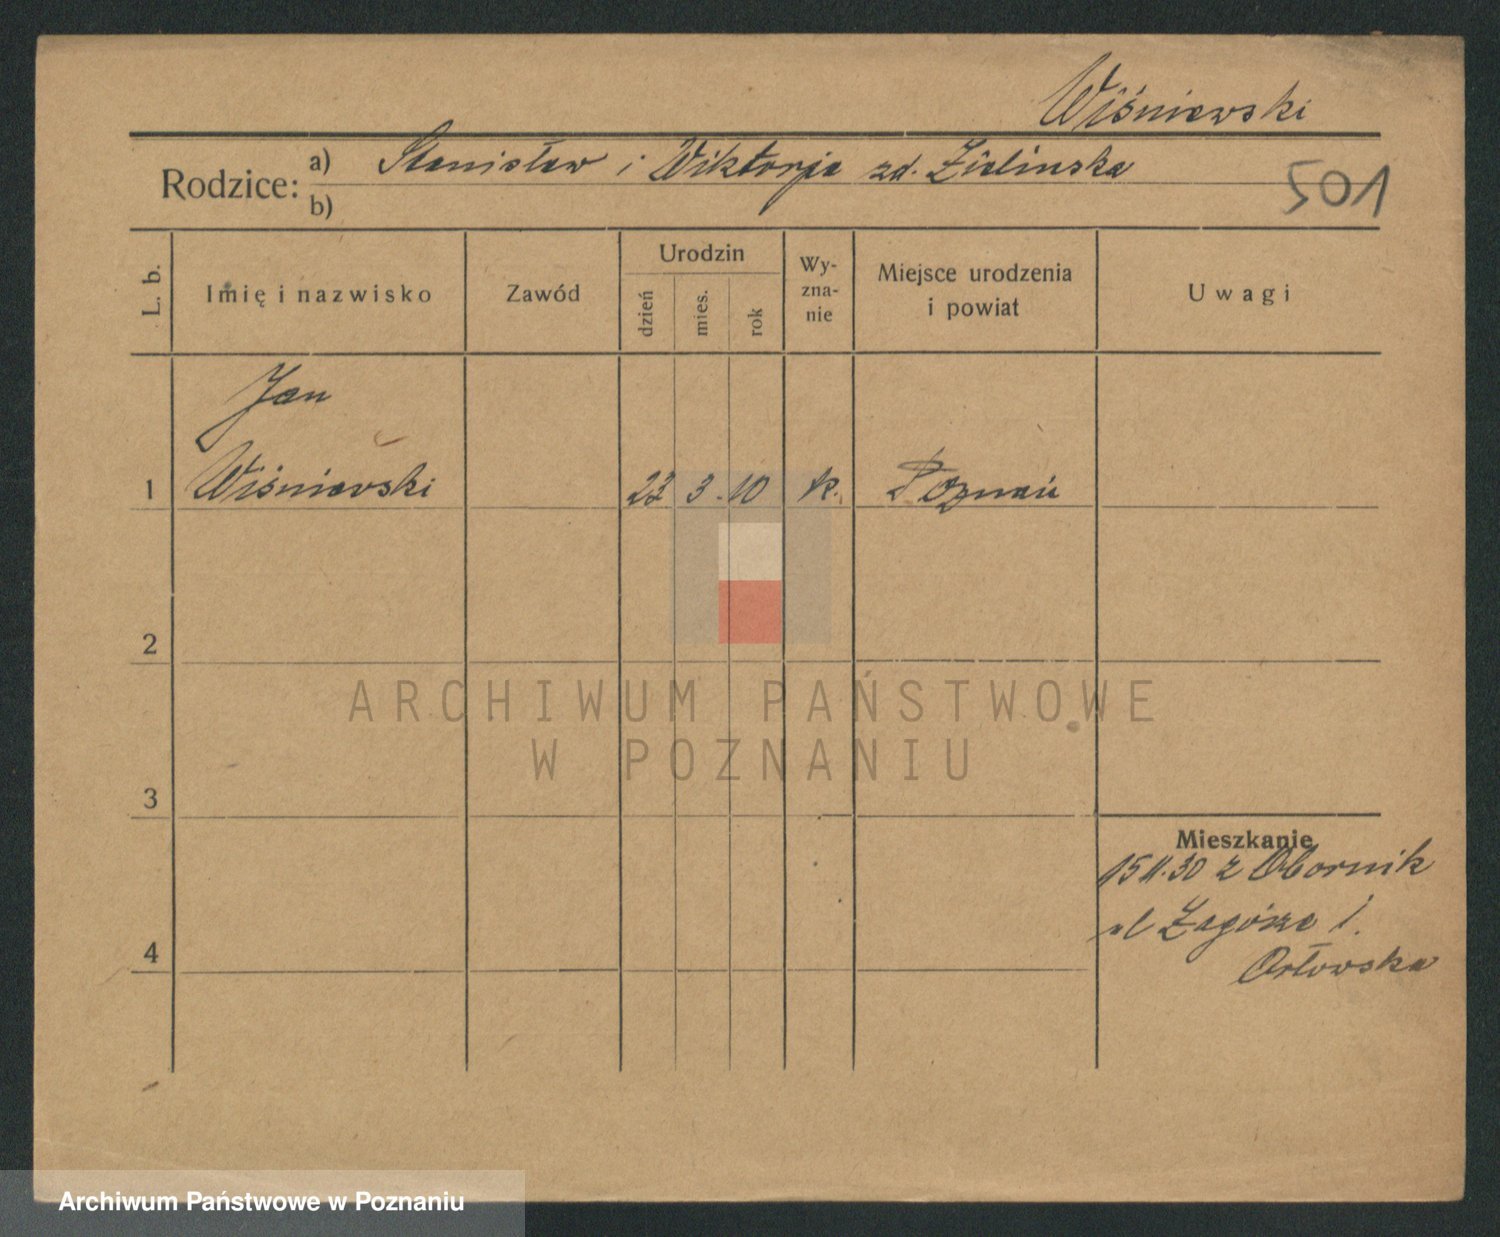 Wiśniewski
Rodzice: a) Stanisław i Wiktorja zd. Zielinska
b)
501
L. b.
Imię i nazwisko
Zawód
Urodzin
dzień
mies.
rok
Wy-
zna-
nie
Miejsce urodzenia
i powiat
Uwagi
Jan
1 Wiśniewski 3. 10 k. Poznań
2
3
4
Mieszkanie
15 11.30 z Obornik
ul Zagórze 1.
Orłowska
ARCHIWUM PAŃSTWOWE
W POZNANIU
Archiwum Państwowe w Poznaniu